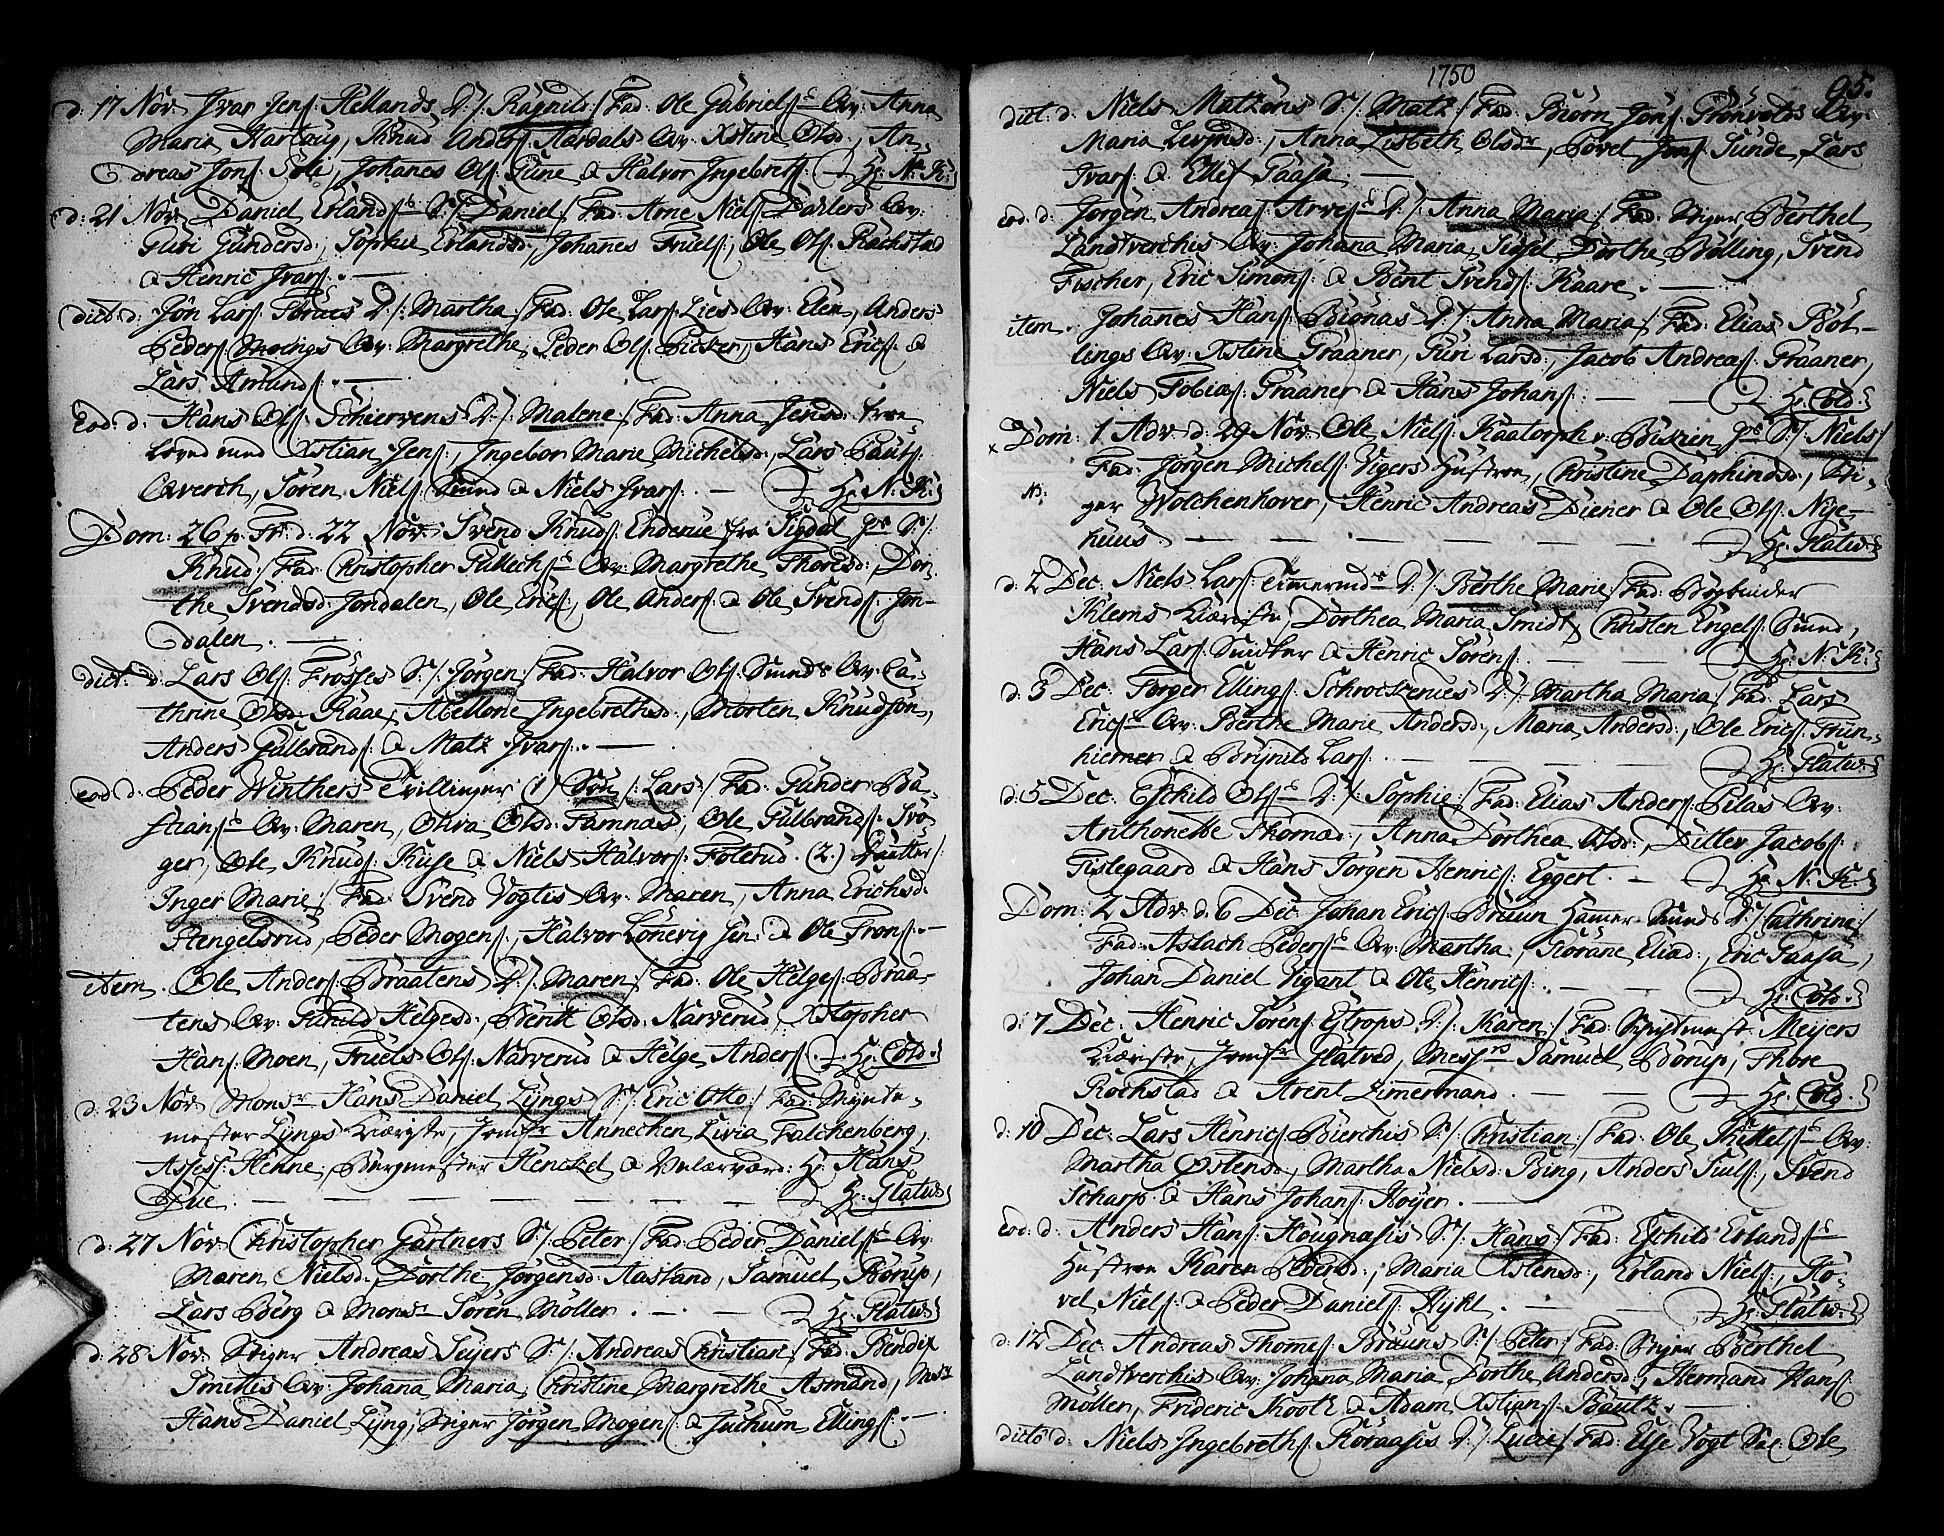 d: 17 Nov: Jvar Jens: Hellands D/: Ragnild:/ Fad: Ole Gabriels: Qv: Anna
Maria Hartoug, Knud Anders: Aardals Qv: Xstine Olsd:, An-
dreas Jons: Sole, Johanes Ols: Tune & Halvor Ingebreths: Hr: N: K:
d: 21 Nov: Daniel Erlands: S:/: Daniel:/ Fad: Arne Niels: Dahlers Qv:
Guri Gundersd:, Sophie Erlandsd:, Johanes Truels:, Ole Ols: Rachstad
& Henric Jvars: . —
dict: d: Jon Lars: D/: Martha:/ Fad: Ole Lars: Lies Qv: Elen, Anders
Peders: Moings Qv: Margrethe, Peder Ols: Picker, Hans Erics: &
Lars Amunds: . —
Eod: d: Hans Ols: Schiervens D/: Malene:/ Fad: Anna Jensd: troe-
loved med Xstian Jens:, Ingebor Marie Michelsd:, Lars Pauls:
Qverch, Søren Niels: Smed & Niels Jvars: . — Hr: N: K:
Dom: 26 p: Tr: d: 22 Nov: Svend Knuds: Enderue fra Sigdal S:/:
Knud:/ Fad: Christopher Qv: Margrethe Thoresd:, Dor-
the Svendsd: Jondalen, Ole Erics:, Ole Anders: & Ole Svends: Jon-
dalen . —
dict: d: Lars Ols: Frosses S:/: Jørgen:/ Fad: Halvor Ols: Smeds Qv: Ca-
thrine Olsd: Raae, Abellone Ingebrethsd:, Morten Knudsøn,
Anders Gulbrands: & Matz Jvars: . —
eod: d: Peder Winthers Tvillinger (1) Søn /: Lars:/ Fad: Gunder Ba-
stians: Qv: Maren, Oliva Olsd: Tamnæs, Ole Gulbrands: Svo-
ger, Ole Knuds: Kuse & Niels Halvors: Foterud. (2.) Datter/:
Inger Marie:/ Fad: Svend Vogtis Qv: Maren, Anna Erichsd:
Hengelsrud, Peder Mogens:, Halvor Lonevig Jen: & Ole Trons: —
item . Ole Anders: Braatens D/: Maren:/ Fad: Ole Helges: Braa-
tens Qv: Gunild Helgesd:, Berit Olsd: Narverud, Xstopher
Hans: Moen, Truels Ols: Narverud & Helge Anders: . Hr: Cold.
d: 23 Nov: Monsr Hans Daniel Lyngs S:/: Eric Otto:/ Fad: Mynte-
mester Lyngs Kiæreste, Jomfr Annechen Livia Falchenberg,
Assess: Henne, Burgmester Henckel & Velærværd: Hr: Hans
Due . — — — Hr: Statw:
d: 27 Nov: Christopher Gartners S:/: Peter:/ Fad: Peder Daniels: Qv:
Maren Nielsd:, Dorthe Jørgensd: Aasland, Samuel Borup,
Lars Berg & Monsr Søren Møller . — Hr: Statw:
d: 28 Nov: Stiger Andreas Seyers S:/: Andreas Christian:/ Fad: Bendix
Smittis Qv: Johana Maria, Christine Margrethe Asmund, Mstr
Hans Daniel Lyng, Stiger Jørgen Mogens: & Juchum Ellings: . —
1750
95.
dict: d: Niels Matzøns S:/: Matz:/ Fad: Biørn Jons: Grønvolds Qv:
Maria Anna Lisbeth Olsdr, Povel Jens: Sunde, Lars
Jvars: & Ellef Paasa . —
eod: d: Jørgen Andreas: Arves D/: Anna Maria:/ Fad: Stiger Berthel
Landtverchis Qv: Johana Maria, Sissel Dorthe Bølling, Svend
Fischer, Eric Simons: & Bent Svends: Kaare . —
item . Johanes Hans: Buønas D/: Anna Maria:/ Fad: Elias Bøl-
lings Qv: Xstine Graaner, Guri Larsd:, Jacob Andreas: Graaner,
Niels Tobias: Graaner & Hans Johans: . — — Hr: Cold.
x Dom: 1 Adv: d: 29 Nov: Ole Niels: Kaatorph v: Bissien S:/: Niels:/
Fad: Jørgen Michels: Vigers Hustroe, Christine Daphindsd:, Sti-
N: ger Wolchenhover, Henric Andreas Diener & Ole Ols: Nye-
huus — — — — Hr: Statw:
d: 2 Dec: Niels Lars: Timeruds D/: Berthe Marie:/ Fad: Bogbinder
Klems Kiæreste, Dorthea Maria Smidt, Christen Engels: Smed,
Hans Lars: Snicker & Henric Sørens: . — Hr: N: K:
d: 3 Dec: Torger Ellings: Schrockenues D/: Martha Maria:/ Fad: Lars
Erics: Qv: Berthe Marie Andersd:, Maria Andersd:, Ole Erics: Trun-
hiemer & Brynild Lars: . — — Hr: Statw:
d: 5 Dec: Eschild Ols: D/: Sophia:/ Fad: Elias Anders: Pilas Qv:
Anthonette Thomæd:, Anna Dorthea Olsd:, Ditlev Jacobs:
Fislegaard & Hans Jørgen Henrics: Eggert . — Hr: N: K:
Dom: 2 Adv: d: 6 Dec: Johan Erics: Bruun Hamer-Smeds D/: Cathrine:/
Fad: Aslach Peders: Qv: Martha, Gorane Eliæd:, Eric Paasa,
Johan Daniel Vigant & Ole Henrics: . — Hr: Cold.
d: 7 Dec: Henric Sørens: Ejtrops D/: Karen:/ Fad: Meyers
Kiæreste, Jomfr Flatved, Messrs Samuel Borup, Thore
Rochstad & Arent Zimermand . — Hr: Cold.
d: 10 Dec: Lars Henrics: Bierchis S:/: Christian:/ Fad: Ole Kittels: Qv:
Martha Østensd:, Martha Nielsd: Bing, Anders Juls:, Svend
Scharp & Hans Johans: Høyer . —
eod: d: Anders Hans: Hougnasis S:/: Hans:/ Fad: Eschild Erlands:
Hustroe Karen Pedersd:, Maria Xstensd:, Erland Niels:, Po-
vel Niels: & Peder Daniels: Nykl . — Hr: Statw:
d: 12 Dec: Andreas Thomes: Bruuns S:/: Peter:/ Fad: Stiger Berthel
Landtverchis Qv: Johana Maria, Dorthe Andersd:, Hermand Hans:
Møller, Frideric Kooth & Adam Xstians: Bautz . —
dicto d: Niels Ingebreths: Foraasis D/: Lucie:/ Fad: Else Vogt Sal: Ole